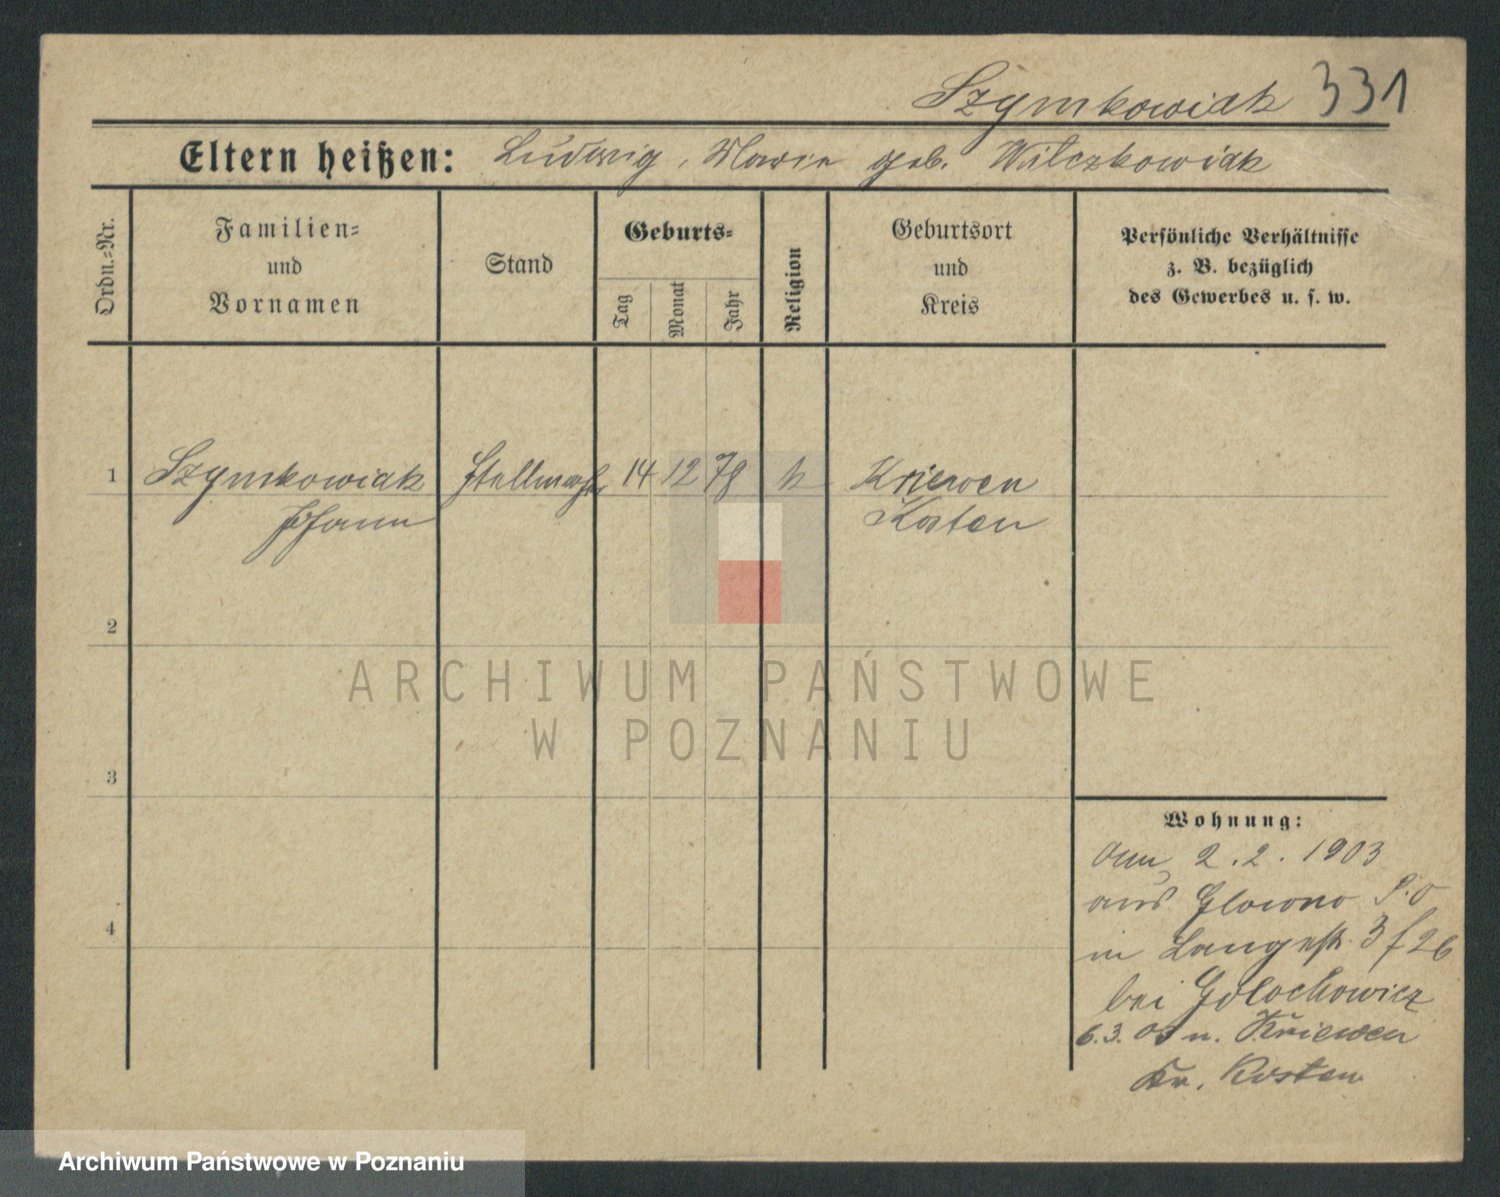 Szymkowiak 331
Eltern heißen: Ludwig, Marie geb. Wilczkowiak
Ordn.-Nr.
Familien-
und
Vornamen
Stand
Geburts-
Tag
Monat
Jahr
Religion
Geburtsort
und
Kreis
Persönliche Verhältnisse
z. B. bezüglich
des Gewerbes u. s. w.
1 Szymkowiak Stellmacher 14 12 78 k Kriewen
Johann Kosten
2
3
4
ARCHIWUM PAŃSTWOWE
W POZNANIU
Wohnung:
2.2.1903
aus Glowno P.O
in Langestr. 3
bei
6.3. n. Kriewen
Kr. Kosten
Archiwum Państwowe w Poznaniu